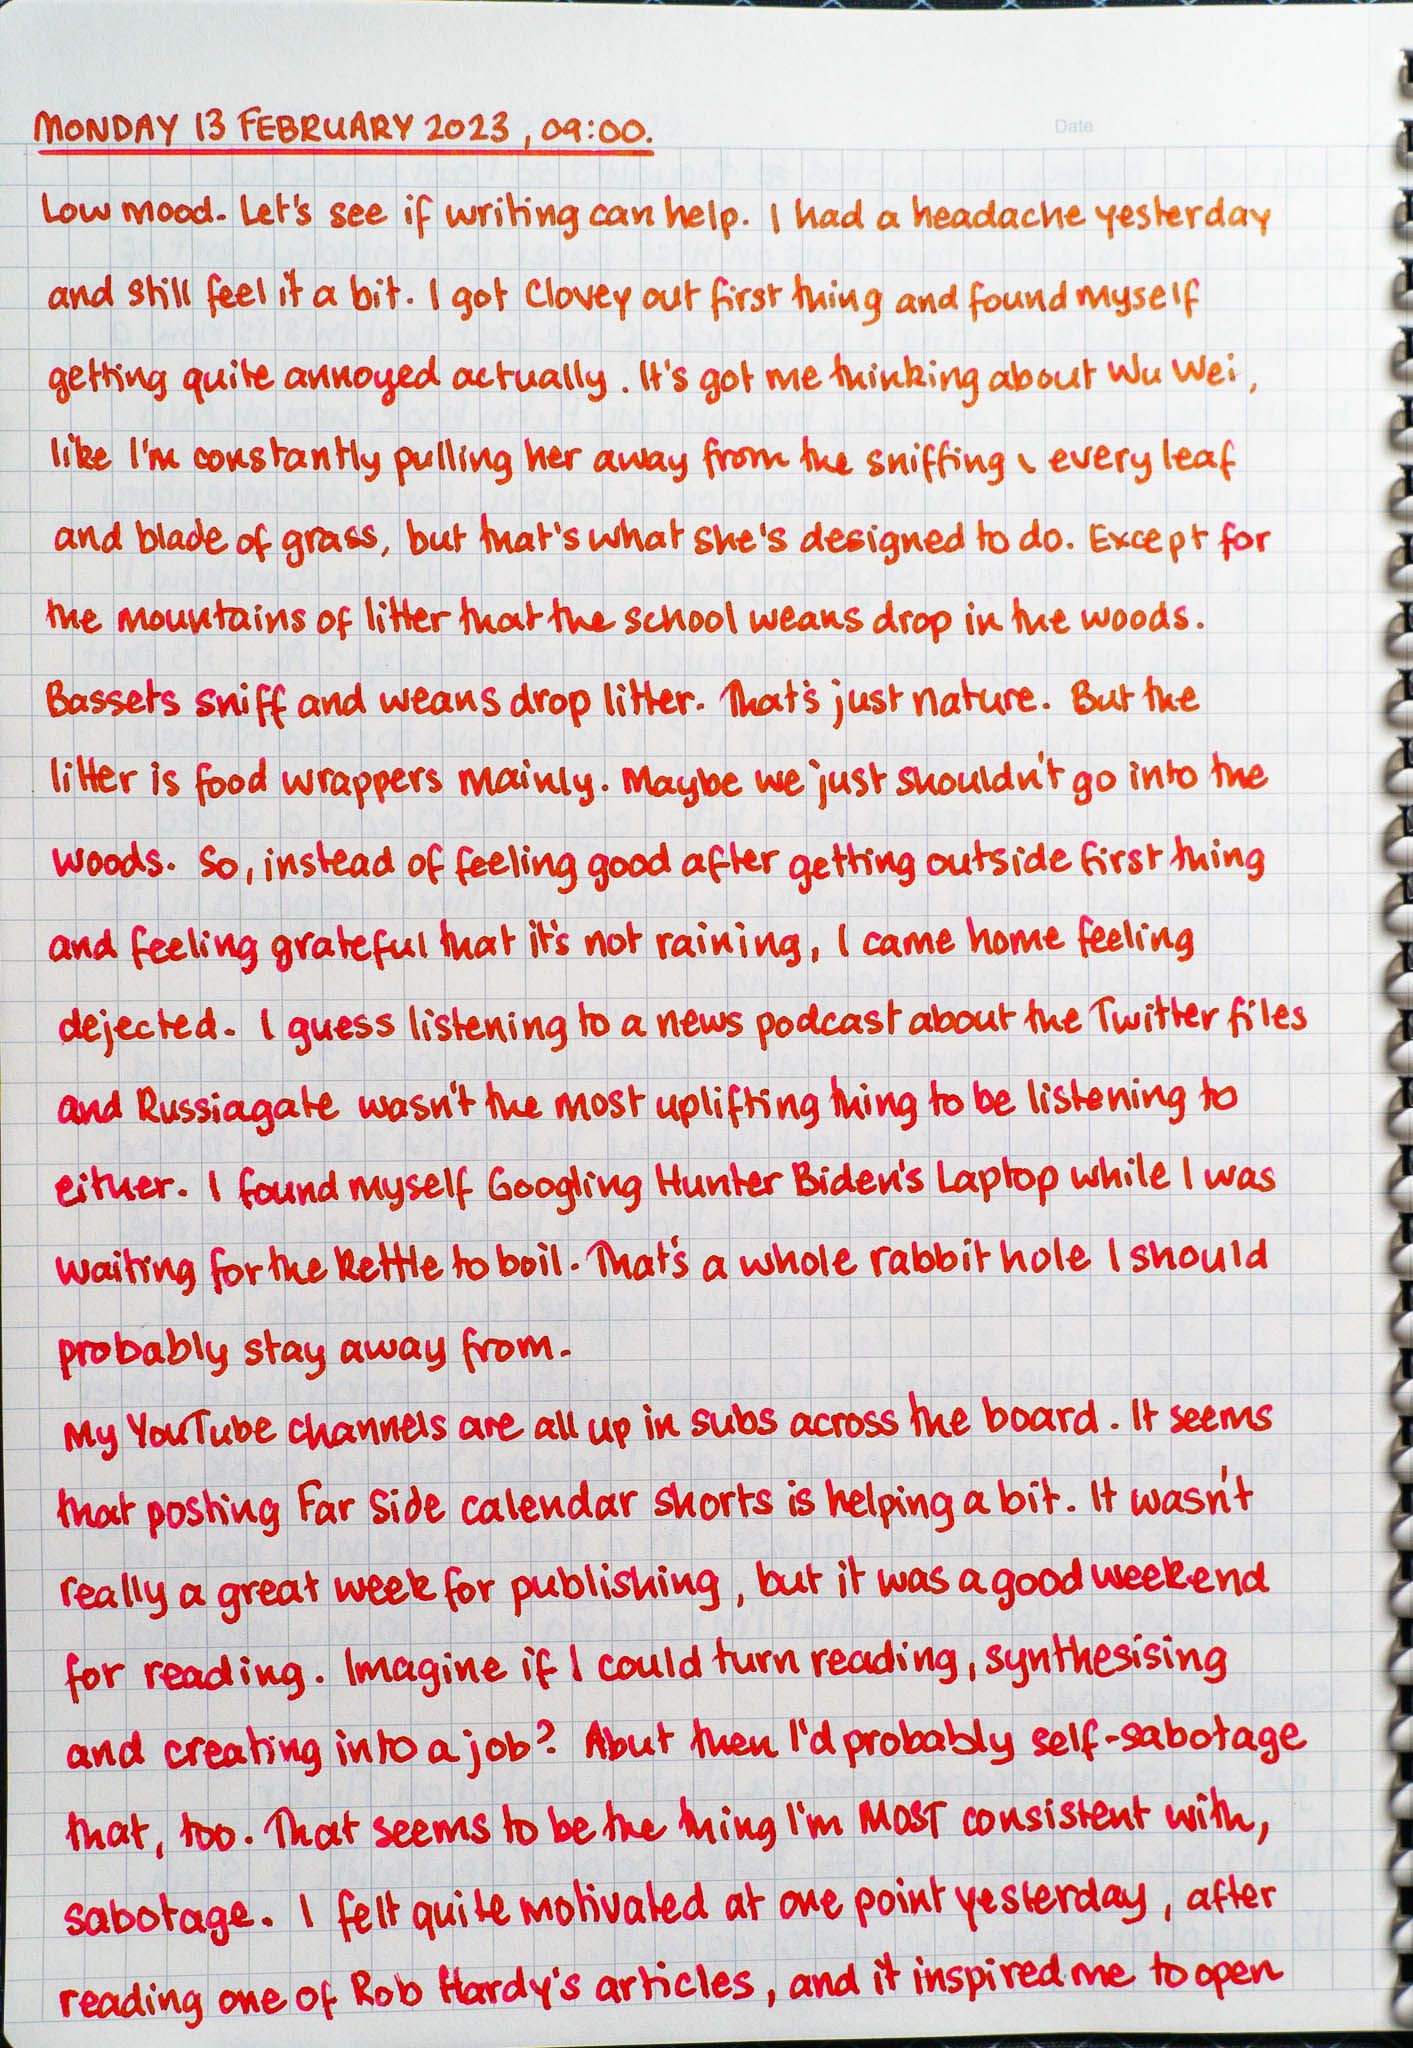 Date
MONDAY 13 FEBRUARY 2023, 09:00.
Low mood. Let's see if writing can help. I had a headache yesterday
and still feel it a bit. I got Clovey out first thing and found myself
getting quite annoyed actually. It's got me thinking about Wu Wei,
like I'm constantly pulling her away from the sniffing, every leaf
and blade of grass, but that's what she's designed to do. Except for
the mountains of litter that the school weans drop in the woods.
Bassets sniff and weans drop litter. That's just nature. But the
litter is food wrappers mainly. Maybe we just shouldn't go into the
woods. So, instead of feeling good after getting outside first thing
and feeling grateful that it's not raining, I came home feeling
dejected. I guess listening to a news podcast about the Twitter files
and Russiagate wasn't the most uplifting thing to be listening to
either. I found myself Googling Hunter Biden's Laptop while I was
waiting for the kettle to boil. That's a whole rabbit hole I should
probably stay away from.
My YouTube channels are all up in subs across the board. It seems
that posting Far Side calendar shorts is helping a bit. It wasn't
really a great week for publishing, but it was a good weekend
for reading. Imagine if I could turn reading, synthesising
and creating into a job? Abut then I'd probably self-sabotage
that, too. That seems to be the thing I'm MOST consistent with,
sabotage. I felt quite motivated at one point yesterday, after
reading one of Rob Hardy's articles, and it inspired me to open